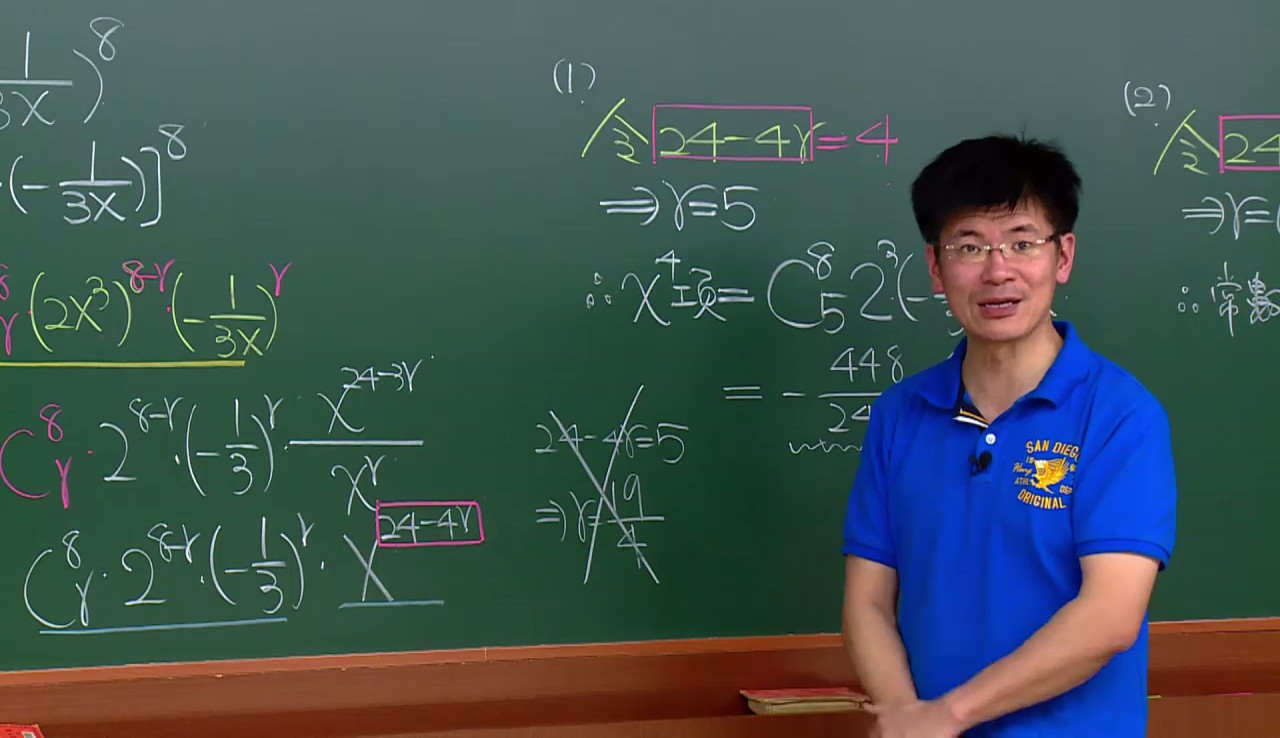 1/3x)^8
(-1/3x)]^8
8 r (2x^3)^{8-r}·(-1/3x)^r
C^8_r·2^{8-r}·(-1/3)^r·x^{24-3r}/x^r
C^8_r·2^{8-r}·(-1/3)^r·x^{24-4r}
(1)
令24-4r=4
⇒r=5
∴x^4項=C^8_5 2^3(-
=-448/24
24-4r=5
⇒r=19/4
(2)
令24
⇒r=
∴常數
SAN DIEGO
ORIGINAL